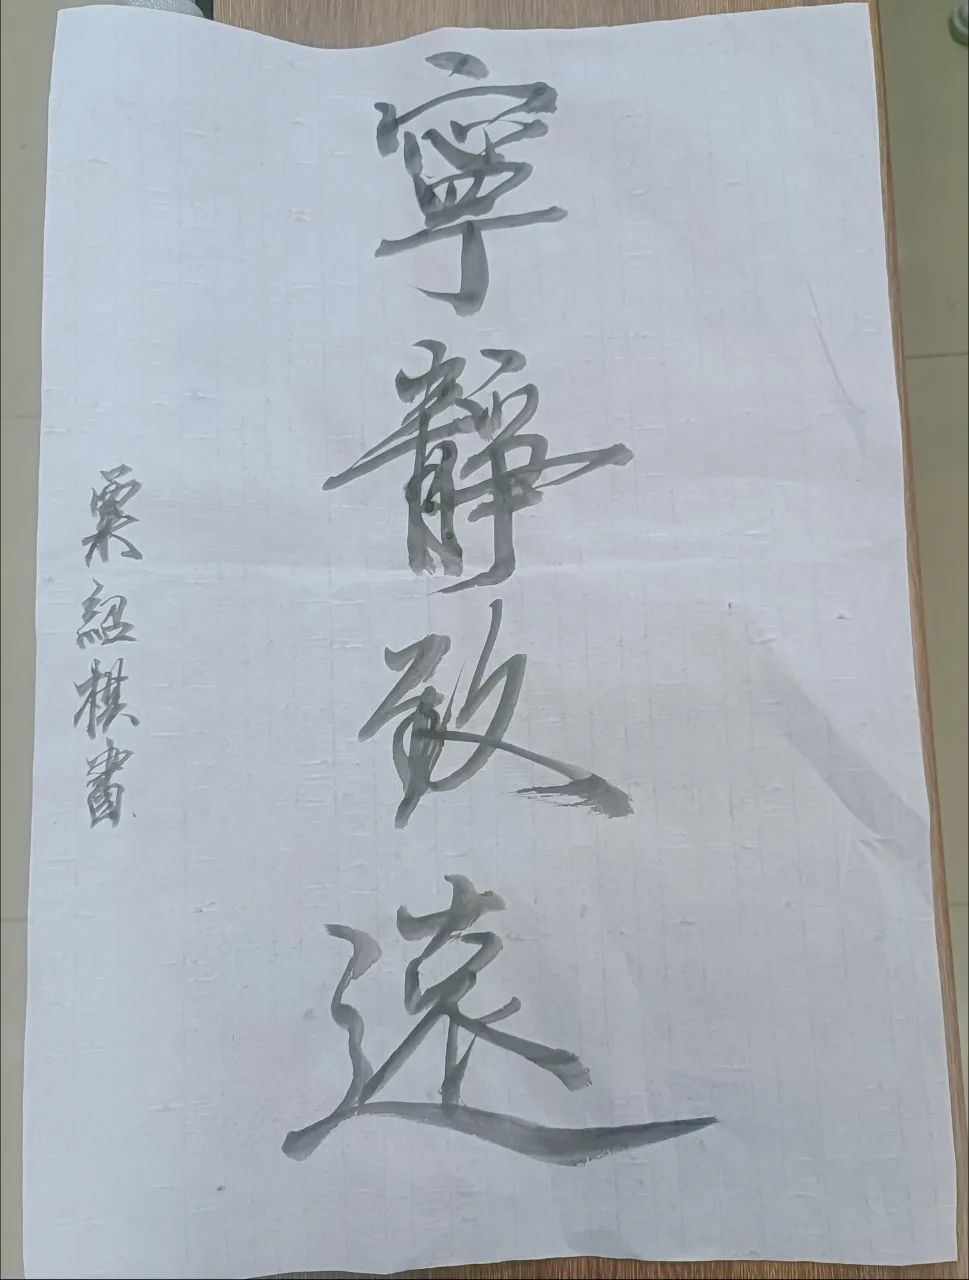 寧靜致遠
粟紹棋書